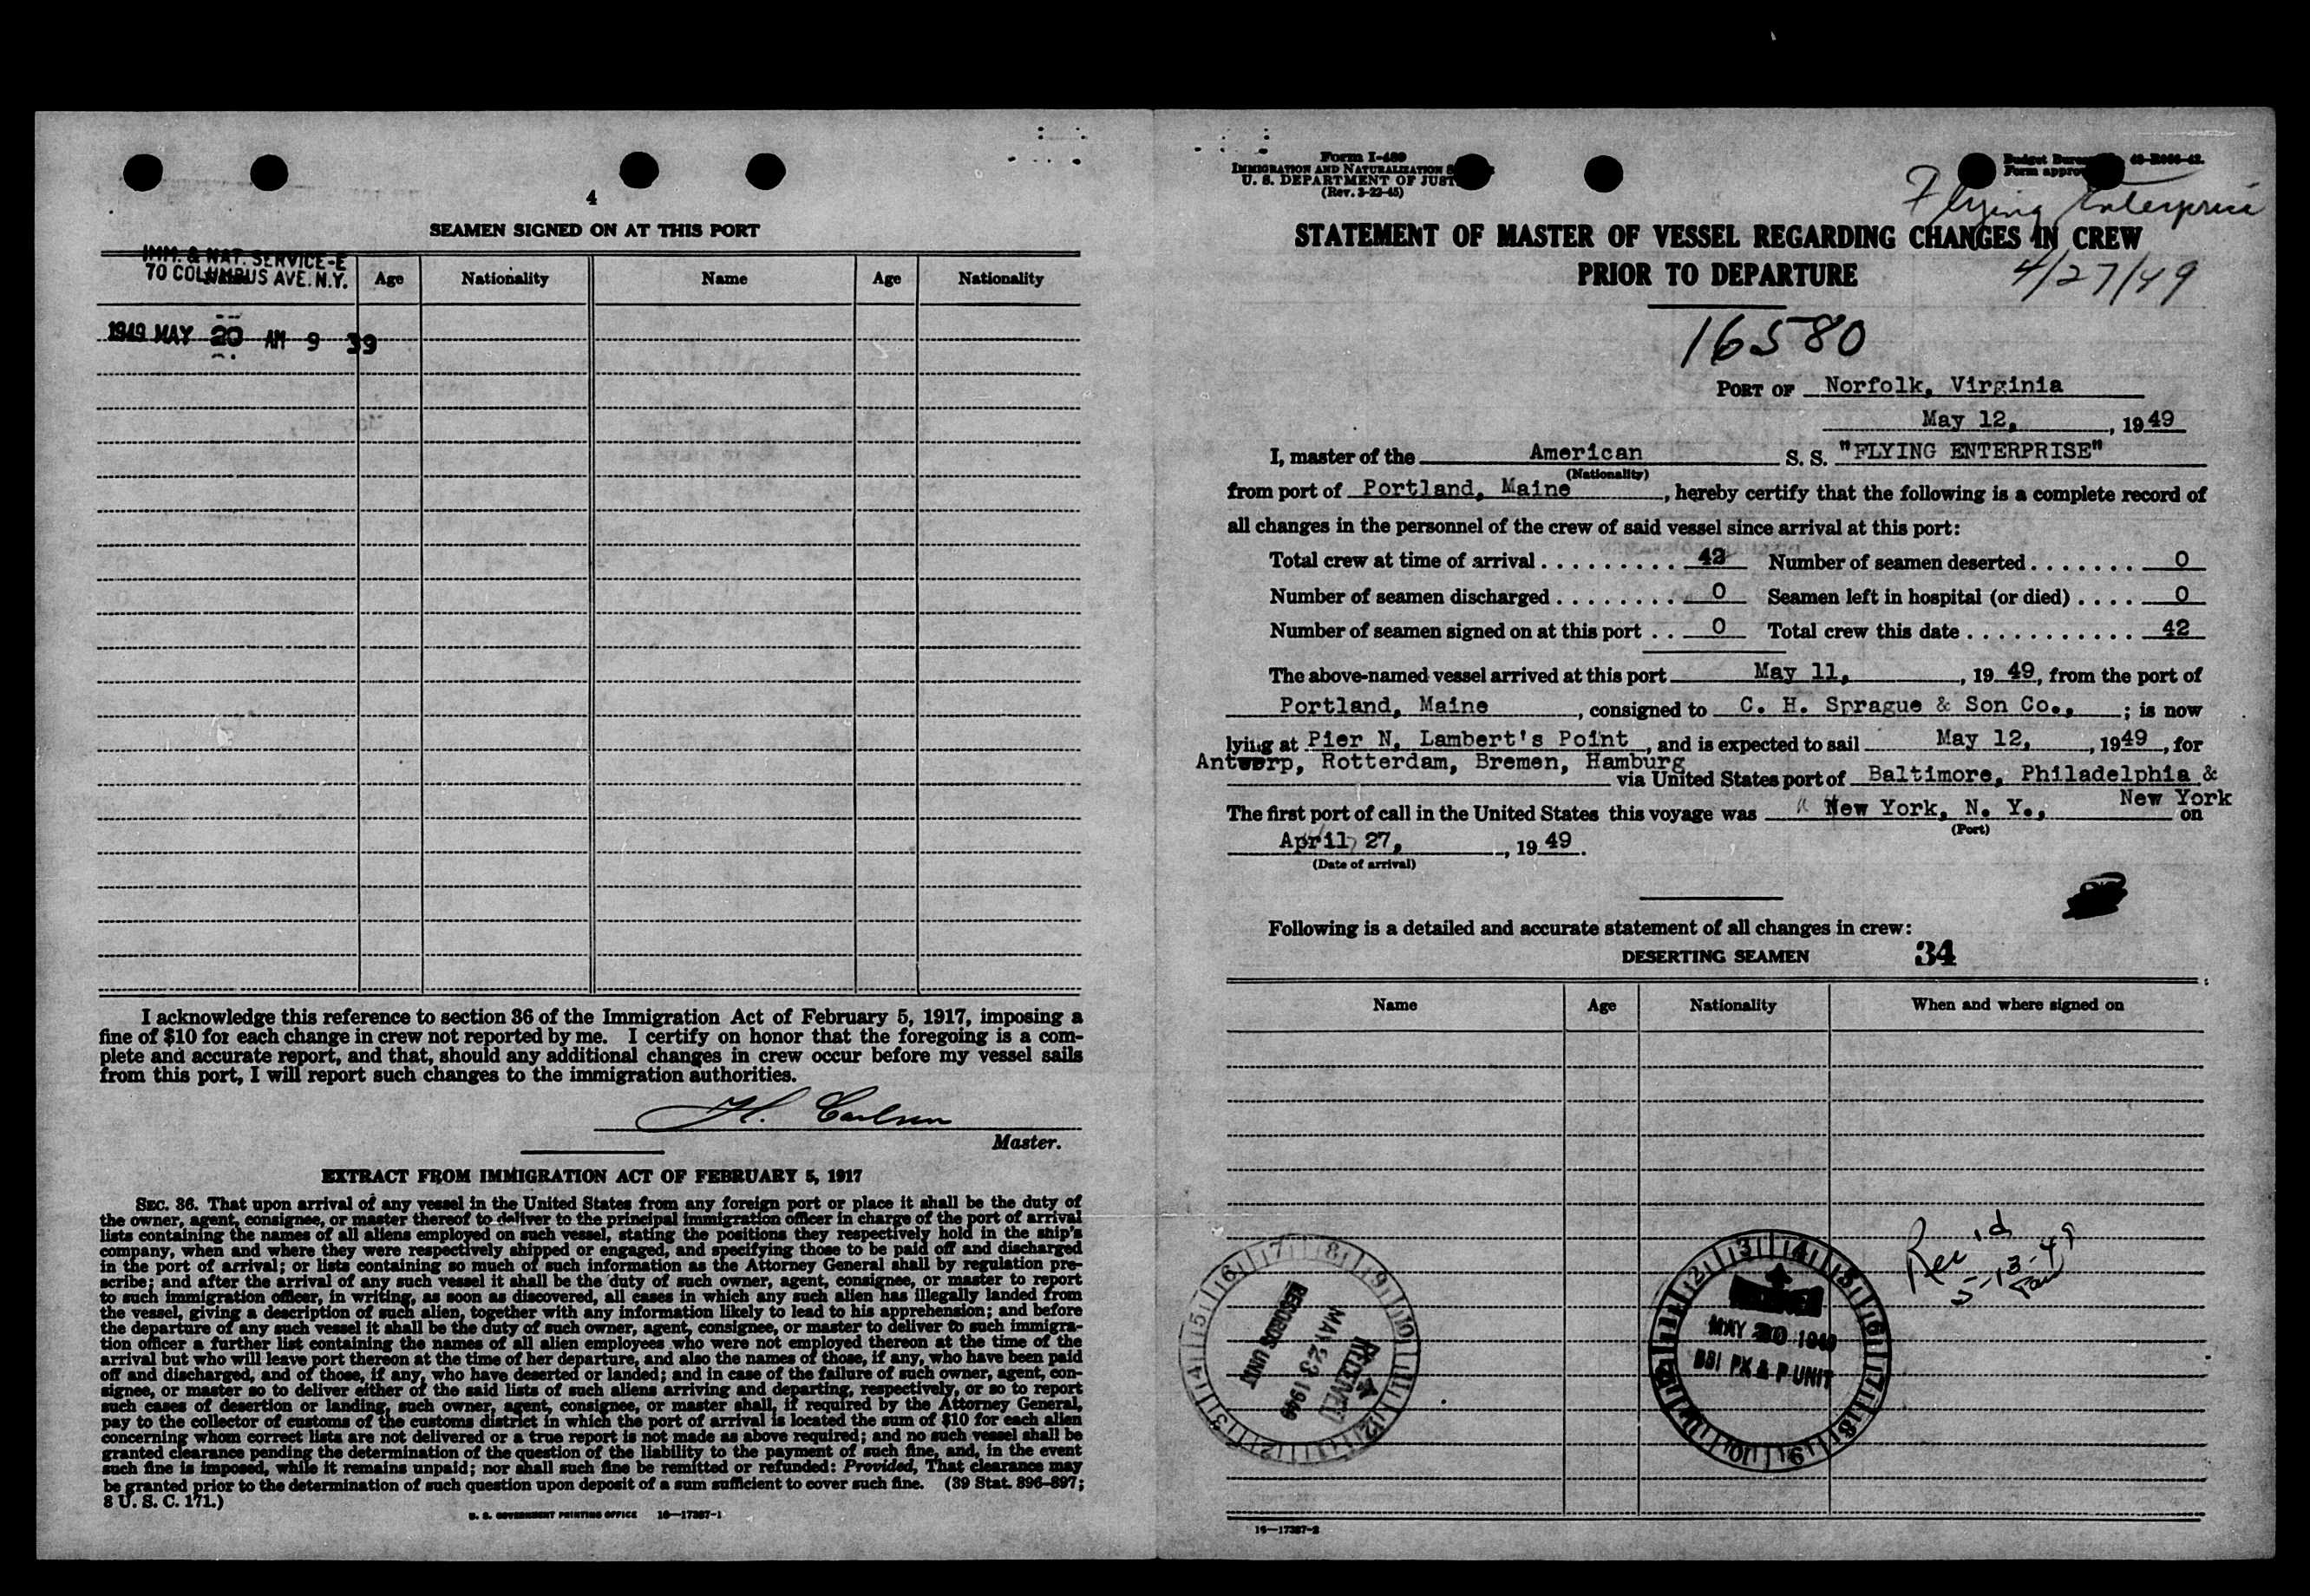 4
SEAMEN SIGNED ON AT THIS PORT
IMM. & NAT. SERVICE-E
70 COLUMBUS AVE. N.Y.
Age Nationality Name Age Nationality
1949 MAY 20 AM 9 39
I acknowledge this reference to section 36 of the Immigration Act of February 5, 1917, imposing a
fine of $10 for each change in crew not reported by me. I certify on honor that the foregoing is a com-
plete and accurate report, and that, should any additional changes in crew occur before my vessel sails
from this port, I will report such changes to the immigration authorities.
H. Carlsen
Master.
EXTRACT FROM IMMIGRATION ACT OF FEBRUARY 5, 1917
SEC. 36. That upon arrival of any vessel in the United States from any foreign port or place it shall be the duty of
the owner, agent, consignee, or master thereof to deliver to the principal immigration officer in charge of the port of arrival
lists containing the names of all aliens employed on such vessel, stating the positions they respectively hold in the ship's
company, when and where they were respectively shipped or engaged, and specifying those to be paid off and discharged
in the port of arrival; or lists containing so much of such information as the Attorney General shall by regulation pre-
scribe; and after the arrival of any such vessel it shall be the duty of such owner, agent, consignee, or master to report
to such immigration officer, in writing, as soon as discovered, all cases in which any such alien has illegally landed from
the vessel, giving a description of such alien, together with any information likely to lead to his apprehension; and before
the departure of any such vessel it shall be the duty of such owner, agent, consignee, or master to deliver to such immigra-
tion officer a further list containing the names of all alien employees who were not employed thereon at the time of the
arrival but who will leave port thereon at the time of her departure, and also the names of those, if any, who have been paid
off and discharged, and of those, if any, who have deserted or landed; and in case of the failure of such owner, agent, con-
signee, or master so to deliver either of the said lists of such aliens arriving and departing, respectively, or so to report
such cases of desertion or landing, such owner, agent, consignee, or master shall, if required by the Attorney General,
pay to the collector of customs of the customs district in which the port of arrival is located the sum of $10 for each alien
concerning whom correct lists are not delivered or a true report is not made as above required; and no such vessel shall be
granted clearance pending the determination of the question of the liability to the payment of such fine, and, in the event
such fine is imposed, while it remains unpaid; nor shall such fine be remitted or refunded: Provided, That clearance may
be granted prior to the determination of such question upon deposit of a sum sufficient to cover such fine. (39 Stat. 896-897;
8 U. S. C. 171.)
U. S. GOVERNMENT PRINTING OFFICE 16—17387-1
Form I-489
IMMIGRATION AND NATURALIZATION
U. S. DEPARTMENT OF JUST
(Rev. 3-22-45)
Budget Bureau 43-R066-42.
Form approv
Flying Enterprise
STATEMENT OF MASTER OF VESSEL REGARDING CHANGES IN CREW
PRIOR TO DEPARTURE
4/27/49
16580
PORT OF Norfolk, Virginia
May 12, , 1949
I, master of the American S. S. "FLYING ENTERPRISE"
(Nationality)
from port of Portland, Maine , hereby certify that the following is a complete record of
all changes in the personnel of the crew of said vessel since arrival at this port:
Total crew at time of arrival 42 Number of seamen deserted 0
Number of seamen discharged 0 Seamen left in hospital (or died) 0
Number of seamen signed on at this port 0 Total crew this date 42
The above-named vessel arrived at this port May 11, , 19 49, from the port of
Portland, Maine , consigned to C. H. Sprague & Son Co., ; is now
lying at Pier N, Lambert's Point , and is expected to sail May 12, , 1949 , for
Antwerp, Rotterdam, Bremen, Hamburg
via United States port of Baltimore, Philadelphia &
New York
The first port of call in the United States this voyage was New York, N. Y., on
(Port)
April 27, , 19 49 .
(Date of arrival)
Following is a detailed and accurate statement of all changes in crew:
DESERTING SEAMEN 34
Name Age Nationality When and where signed on
Rec'd
5-13-49
RECEIVED
MAY 23 1949
RECORDS UNIT
RECEIVED
MAY 20 1949
BSI PX & P UNIT
16—17387-2